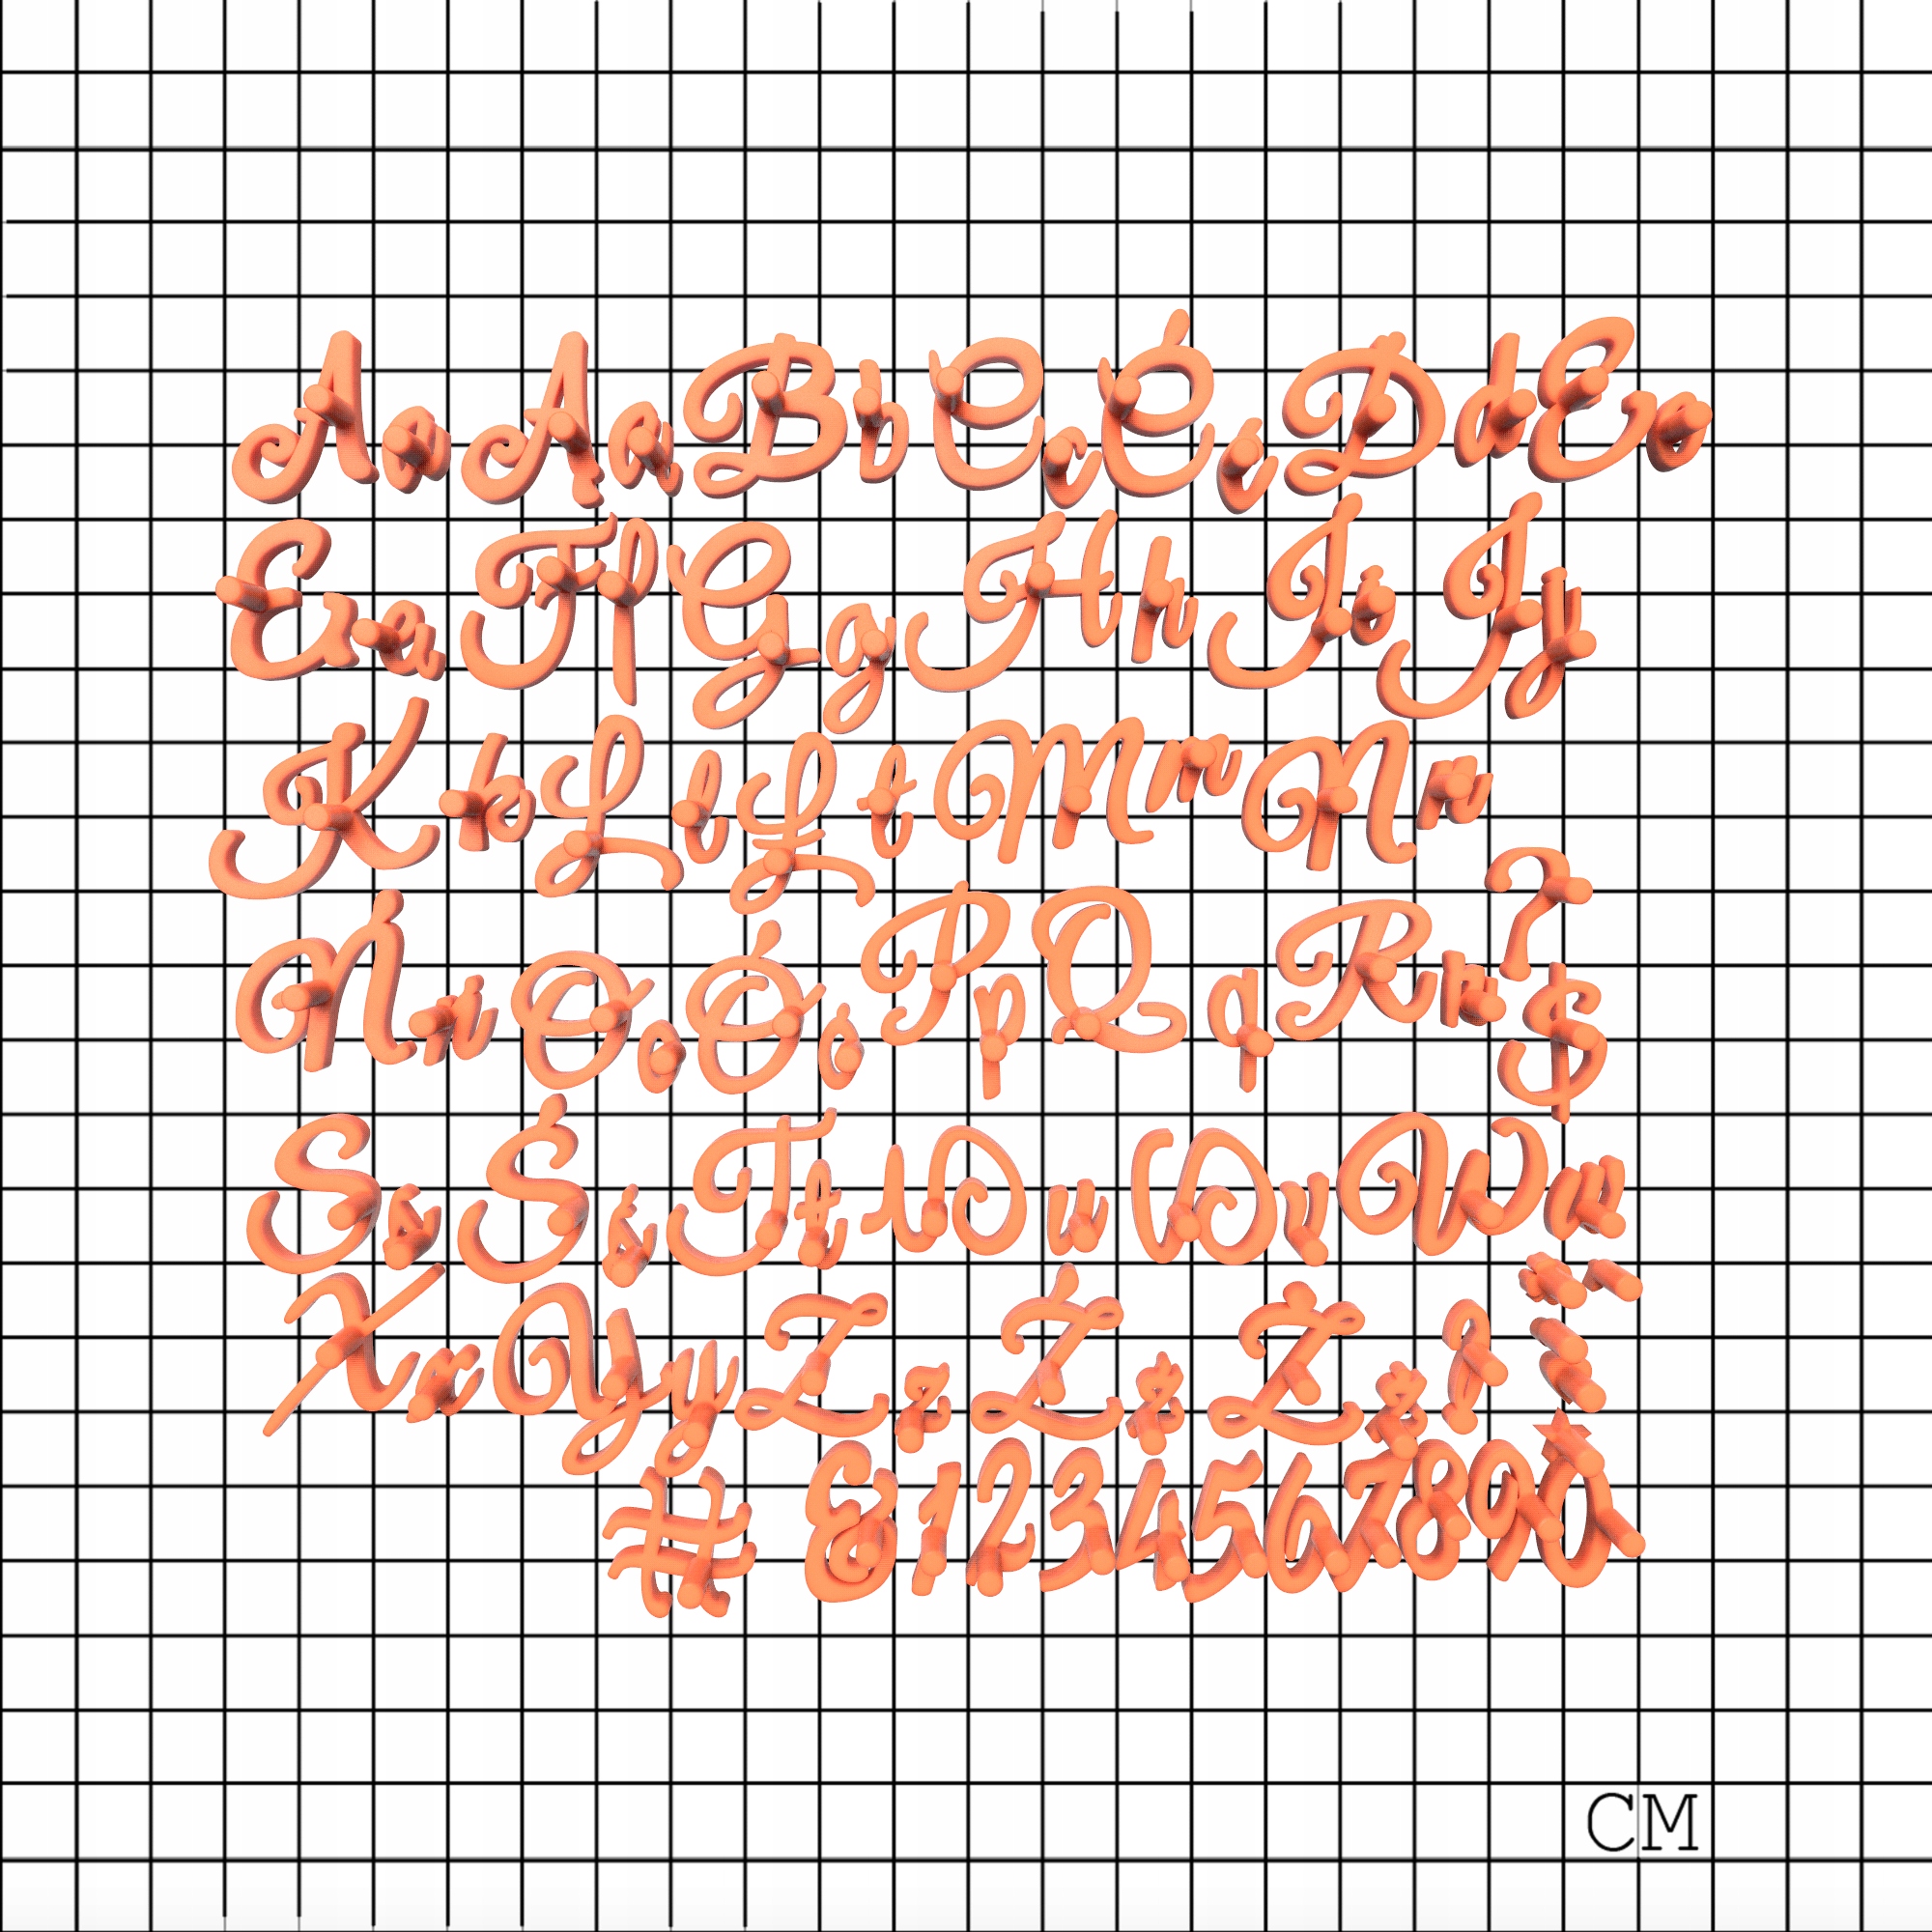 A a Ą ą B b C c Ć ć D d E e
Ę ę F f G g H h I i J j
K k L l Ł ł M m N n
Ń ń O o Ó ó P p Q q R r ? $
S s Ś ś T t U u V v W w
X x Y y Z z Ź ź Ż ż !
# & 1 2 3 4 5 6 7 8 9 0
CM